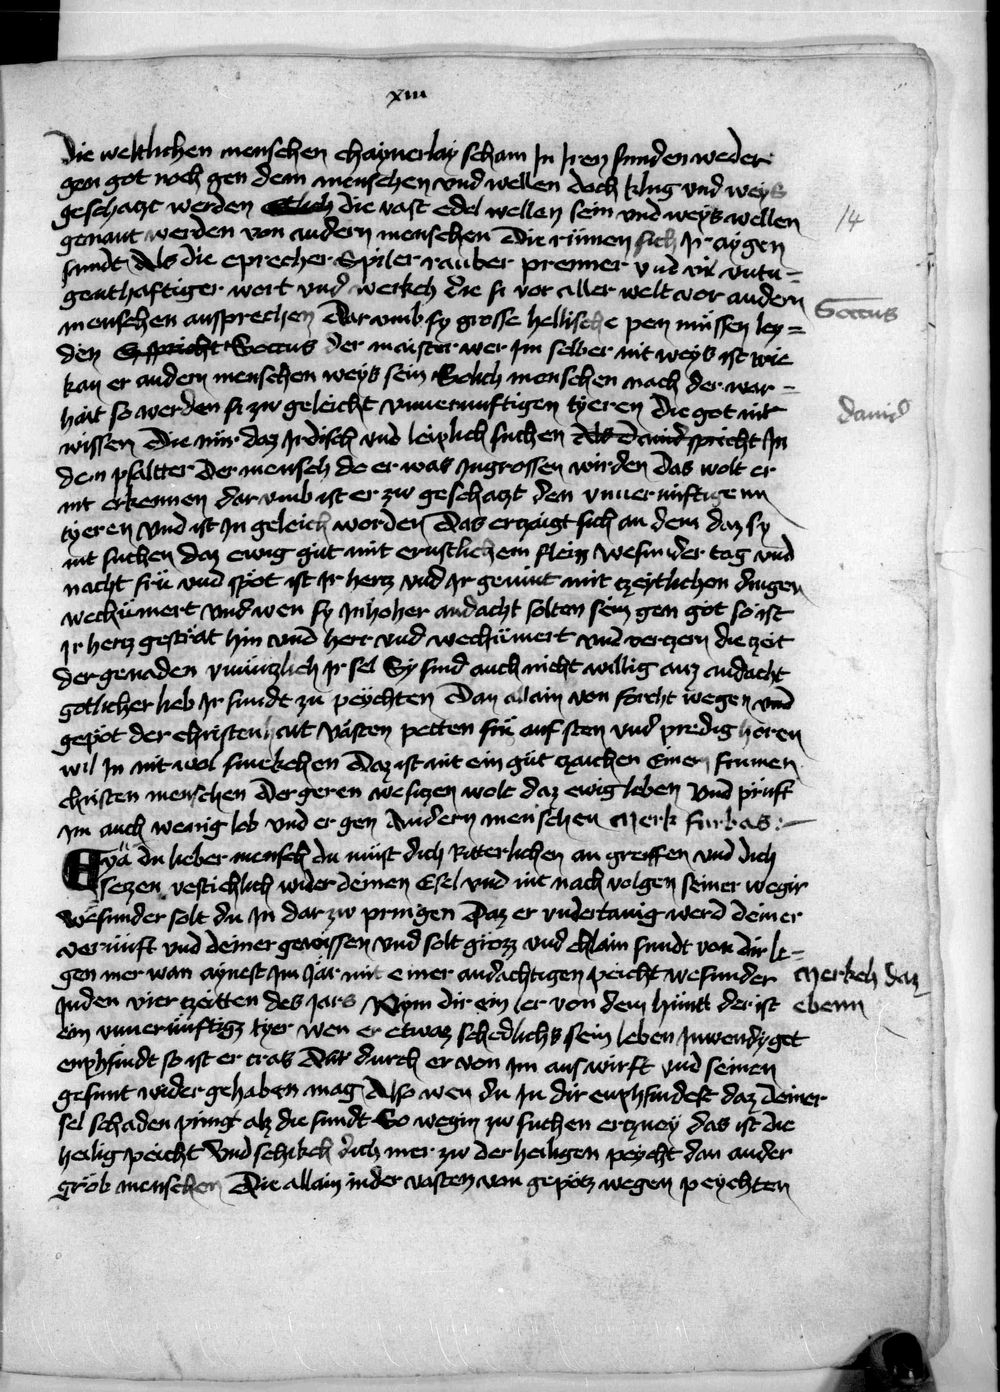 xiii
Die weltlichen menschen chaynerlay scham Jn Jren sunden weder
gen got noch gen dem menschen vnd wellen doch klug vnd weys
geschatzt werden etlich die vast edel wellen sein vnd weys wellen
14
genant werden von andern menschen Die rümen sich Jr aygen
sundt Als die eprecher Spiler rauber prenner vnd vil vntu=
genthaftiger wort vnd werkch die si vor aller welt vor andern
Boecius
menschen aussprechen Dar vmb sy grosse hellische pein müssen ley=
den Es spricht Boecius der maister wer Jm selber nit weys ist wie
kan er andern menschen weys sein Solich menschen nach der war=
hait so werden si zw geleicht vnuernuftigen tyeren Die got nit
dauid
wissen Die nür daz Jrdisch vnd leiplich suchen Als Dauid spricht Jn
dem psaltter Der mensch do er was Jngrossen wirden Das wolt er
nit erkennen dar vmb ist er zw geschatzt den vnuernüftigenn
tyeren Vnd ist Jn geleich worden Das erzaigt sich an dem daz sy
nit suchen daz ewig gut mit ernstlichem fleizz Wesunder tag vnd
nacht frü vnd spöt ist Jr hertz vnd Jr gemüt mit czeytlichen dingen
wechümert Vnd wen sy Jnhoher andacht solten sein gen got so ist
Jr hertz gesträt hin vnd herr vnd wechümert vnd verczern die zeit
der genaden vnnützlich Jr sel Sy sind auch nicht willig auz andacht
gotlicher lieb Jr sundt zu peychten Dan allain von forcht wegen vnd
gepöt der christenhait Vasten petten frü auf sten vnd predig hören
wil Jn nit wol smekchen Daz ist nit ein güt czaichen Einem frumen
christen menschen Der geren wesitzen wolt daz ewig leben Vnd prüft
Jm auch wenig lob vnd er gen Andern menschen Merk furbas :~
Eyä du lieber mensch du müst dich Ritterlichen an greiffen vnd dich
setzen vestichlich wider deinen Esel vnd nit nach volgen seiner wegir
Wesunder solt du Jn dar zw pringen Daz er vndertanig werd deiner
vernüft vnd deiner gewissen vnd solt grözz vnd chlain sundt von dir le=
gen mer wan aynest Jm Jar mit einer andachtigen peicht wesunder
Merkch daz
Jnden vier czeitten des Jars Nym dir ein ler von dem hüntt der ist
ebenn
ein vnuernüftigz tyer Wen er etwaz schedlichs sein leben Jnwendyget
enphfindt so ist er cras Dar durch er von Jm aus wirft vnd seinen
gesunt wider gehaben mag Also wen du Jn dir enphfindest daz deiner
sel schaden pringt alz die sundt So wegin zw suchen ertzney das ist die
heilig peicht Vnd schikch dich mer zw der heiligen peycht dan ander
gröb menschen Die allain inder vasten von gepötz wegen peychten